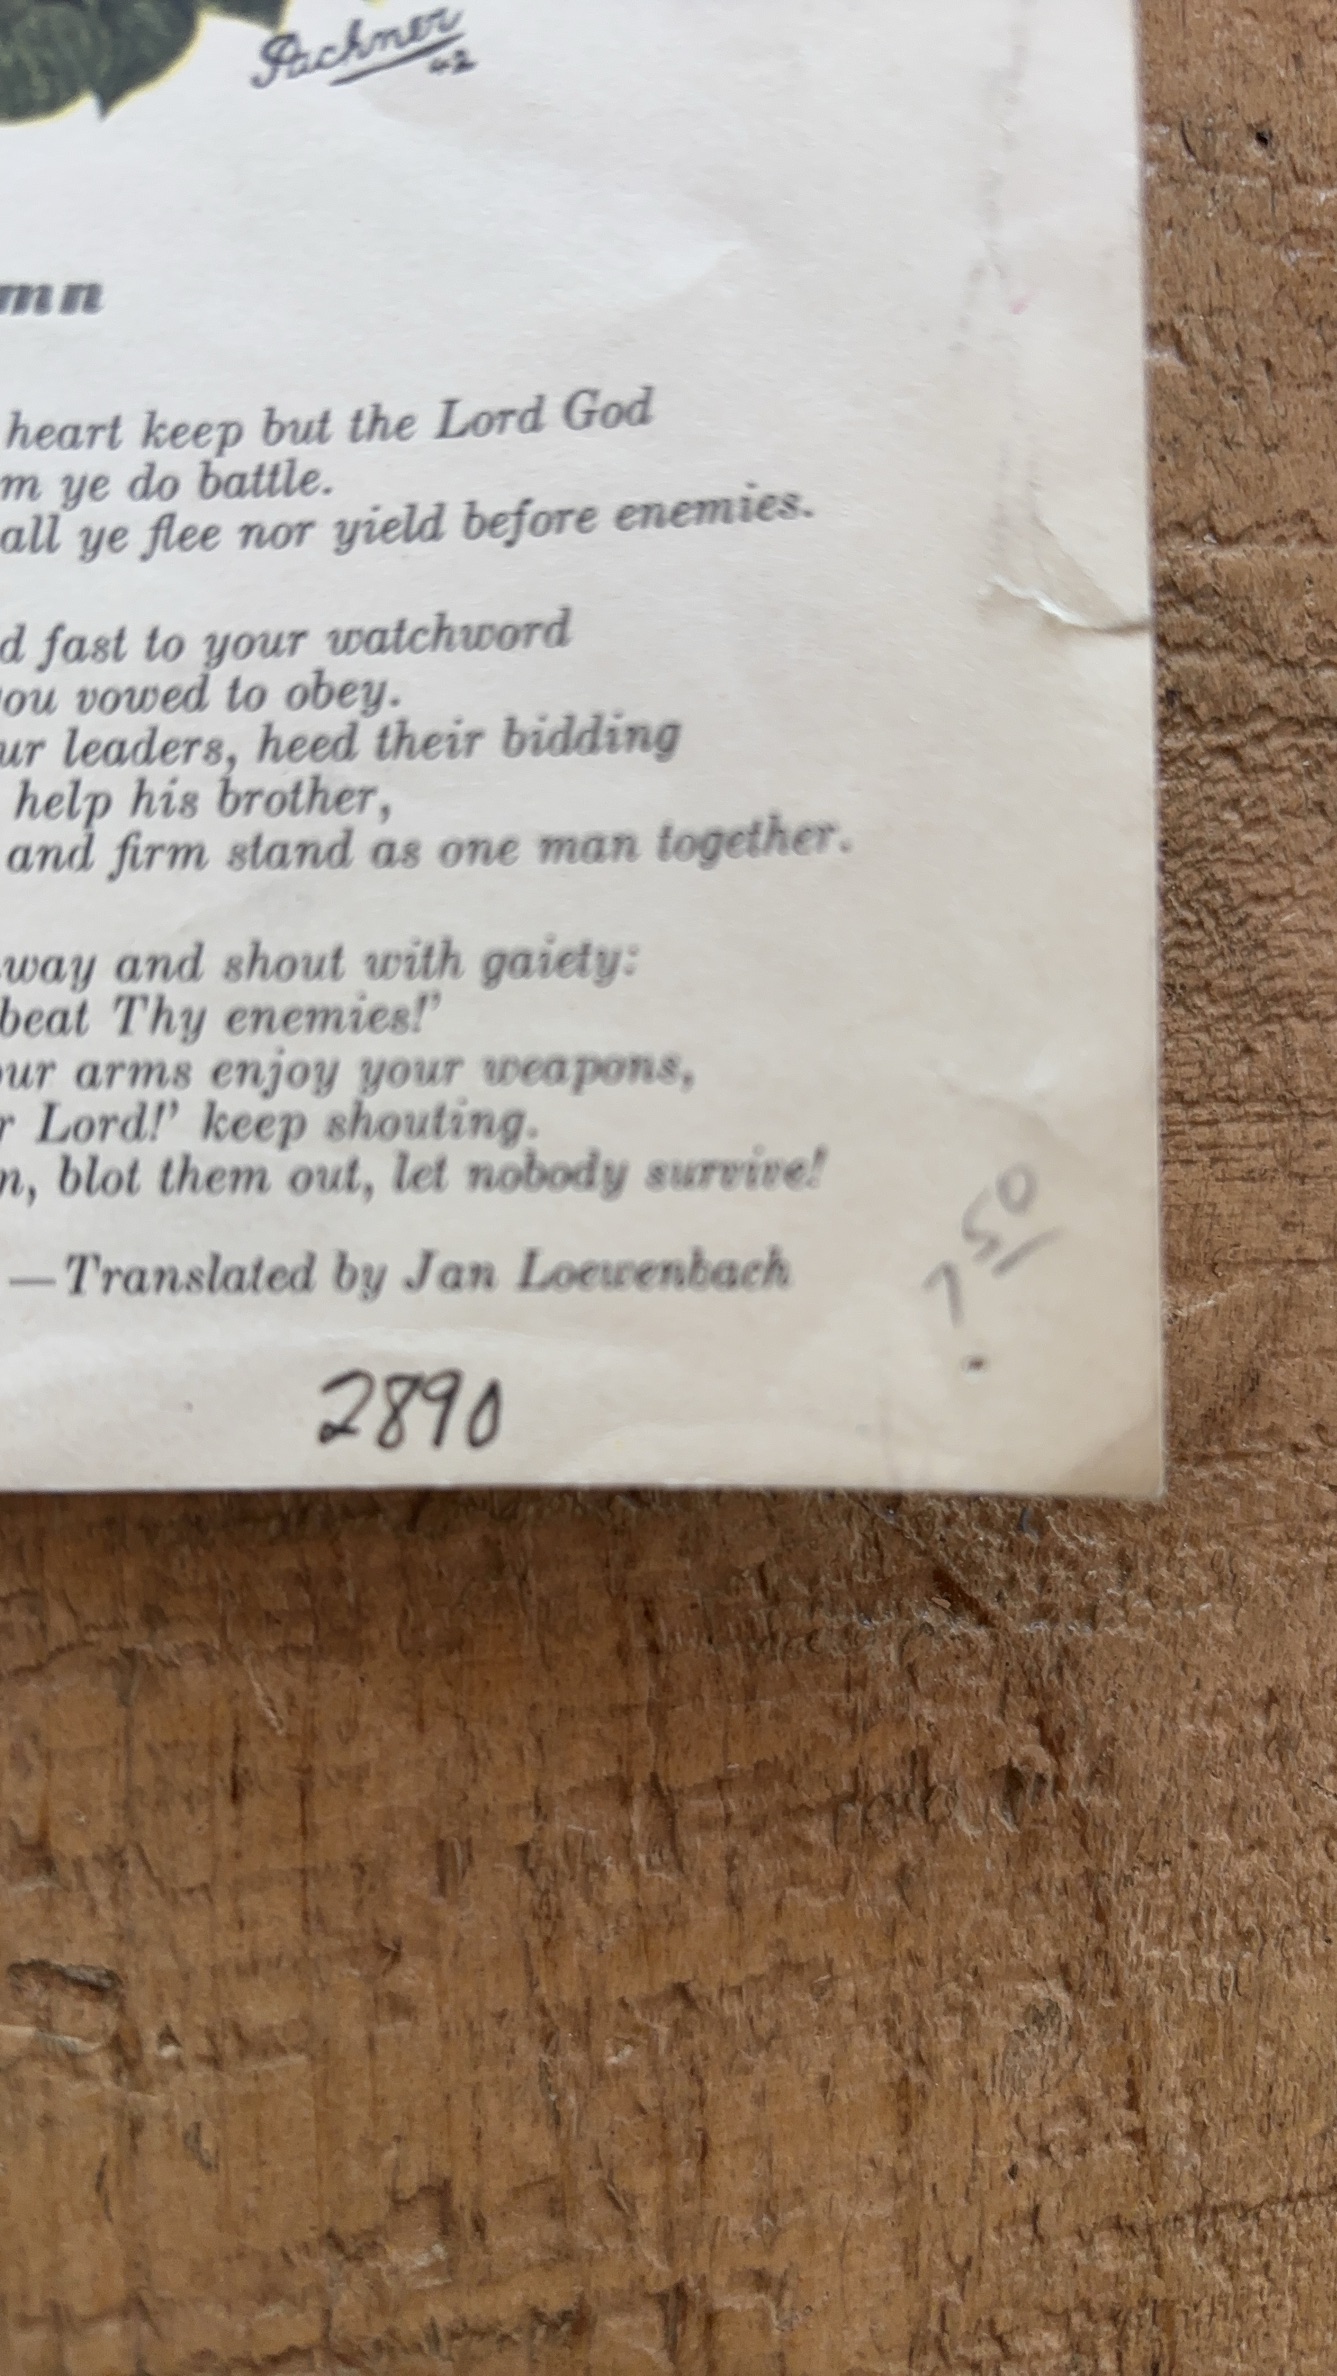 Pachner
42
mn
heart keep but the Lord God
m ye do battle.
all ye flee nor yield before enemies.
d fast to your watchword
ou vowed to obey.
ur leaders, heed their bidding
help his brother,
and firm stand as one man together.
way and shout with gaiety:
beat Thy enemies!’
our arms enjoy your weapons,
r Lord!’ keep shouting.
n, blot them out, let nobody survive!
—Translated by Jan Loewenbach
7 50
2890